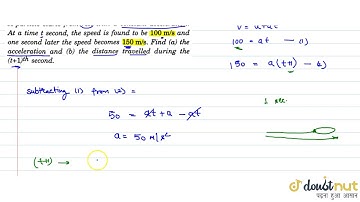 At a time t second, the speed is found to be 100 m/s and
one second later the speed becomes 150 m/s. Find (a) the
acceleration and (b) the distance travelled during the
(t+1)th second.
100 = at — (1)
150 = a(t+1) — 2)
subtracting (1) from (2) =
50 = at + a - at
a = 50 m/s²
1 sec.
(t+1) →
doubtnut
पढ़ना हुआ आसान